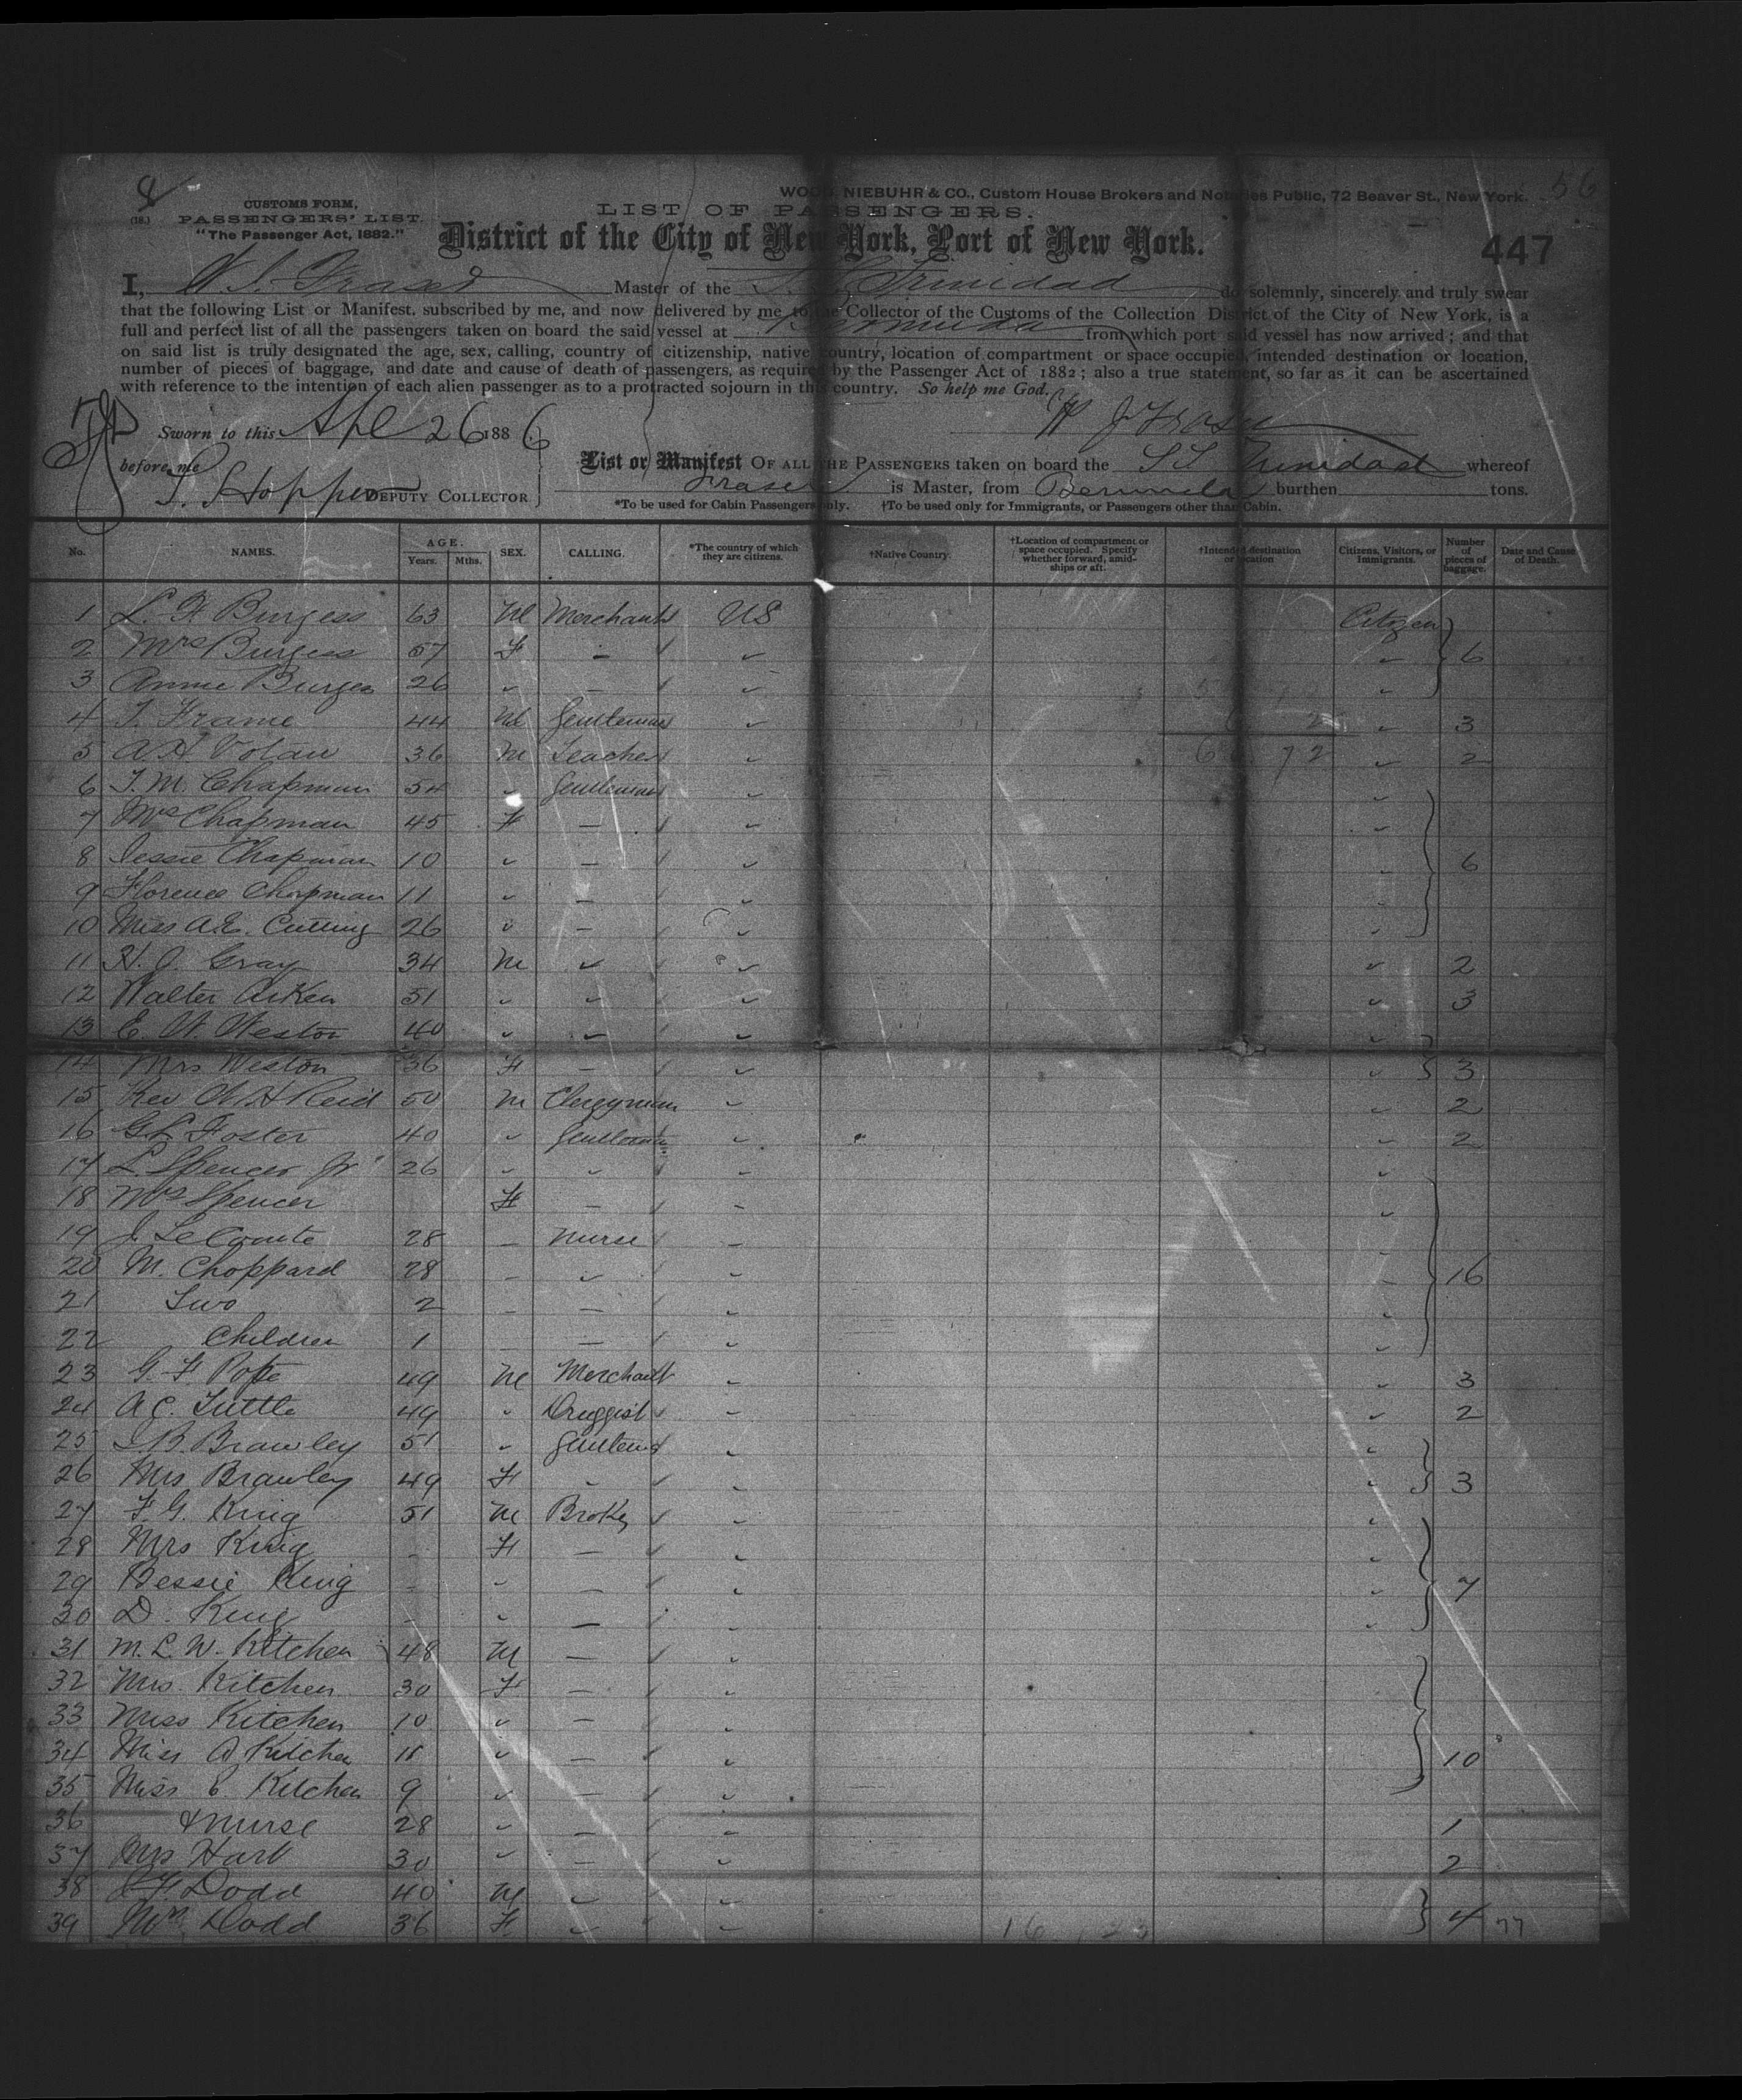 8
WOOD, NIEBUHR & CO., Custom House Brokers and Notaries Public, 72 Beaver St., New York. 56
(18.) CUSTOMS FORM,
PASSENGERS' LIST.
"The Passenger Act, 1882."
LIST OF PASSENGERS.
District of the City of New York, Port of New York.
447
I, W. J. Fraser Master of the S.S. Trinidad do solemnly, sincerely and truly swear
that the following List or Manifest, subscribed by me, and now delivered by me to the Collector of the Customs of the Collection District of the City of New York, is a
full and perfect list of all the passengers taken on board the said vessel at Bermuda from which port said vessel has now arrived; and that
on said list is truly designated the age, sex, calling, country of citizenship, native country, location of compartment or space occupied, intended destination or location,
number of pieces of baggage, and date and cause of death of passengers, as required by the Passenger Act of 1882; also a true statement, so far as it can be ascertained
with reference to the intention of each alien passenger as to a protracted sojourn in this country. So help me God.
W J Fraser
Sworn to this Apl 26 1886
before me
S. Hopper DEPUTY COLLECTOR
List or Manifest OF ALL THE PASSENGERS taken on board the SS Trinidad whereof
Fraser is Master, from Bermuda burthen tons.
*To be used for Cabin Passengers only. †To be used only for Immigrants, or Passengers other than Cabin.
No. NAMES. AGE. Years. Mths. SEX. CALLING. *The country of which they are citizens. †Native Country. †Location of compartment or space occupied. Specify whether forward, amidships or aft. †Intended destination or location Citizens, Visitors, or Immigrants. Number of pieces of baggage. Date and Cause of Death.
1 L. F Burgess 63 M Merchant US Citizen
2 Mrs Burgess 57 F - 6
3 Annie Burgess 26 -
4 T. Frame 44 M Gentleman 3
5 A. H 36 M Teacher 2
6 T. M. Chapman 54 Gentleman
7 Mrs Chapman 45 F -
8 Jessie Chapman 10 - 6
9 Florence Chapman 11 -
10 Miss A. E. Cutting 26 -
11 H. J. Gray 34 M 2
12 Walter Aiken 51 3
13 E. W. Weston 40
14 Mrs Weston 36 F - 3
15 Rev W. H Reid 50 M Clergyman 2
16 G L Foster 40 Gentleman 2
17 L Spencer Jr 26
18 Mrs Spencer F -
19 J. LeComte 28 - Nurse
20 M. Choppard 28 - 16
21 Two 2 - -
22 Children 1 -
23 G. F Pope 49 M Merchant 3
24 A C. Tuttle 49 Druggist 2
25 J. B. Brawley 51 Gentleman
26 Mrs Brawley 49 F 3
27 F. G. King 51 M Broker
28 Mrs King - F -
29 Bessie King - - 7
30 D. King - -
31 M. L. W. Kitchen 48 M -
32 Mrs. Kitchen 30 F -
33 Miss Kitchen 10 -
34 Miss A Kitchen 11 - 10
35 Miss C. Kitchen 9 -
36 & Nurse 28 - 1
37 Mrs Hart 30 - 2
38 Dodd 40 M
39 Mrs. Dodd 36 F 4 77